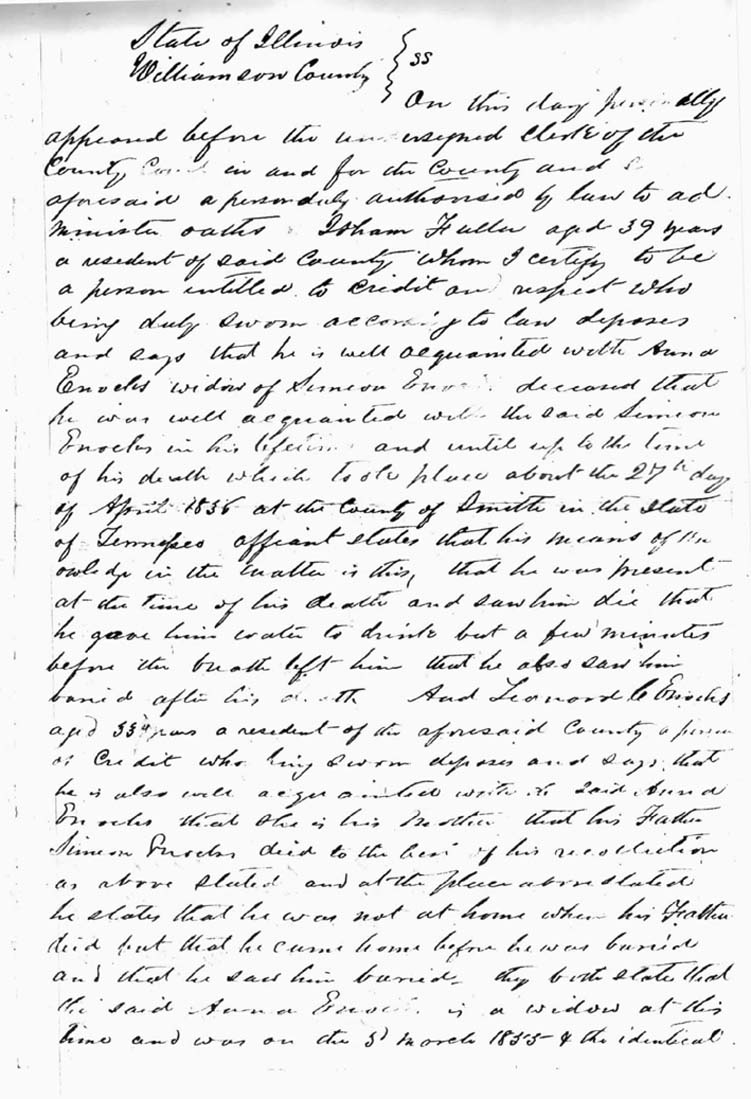 State of Illinois
Williamson County } SS
On this day personally
appeared before the undersigned Clerk of the
County Court in and for the County and
aforesaid a person duly authorised by law to ad
minister oaths Isham Fuller aged 39 years
a resedent of said County whom I certify to be
a person intitled to credit and respect who
being duly sworn according to law deposes
and says that he is well acquainted with Anna
Enochs widow of Simeon Enochs deceased that
he was well acquainted with the said Simeon
Enochs in his lifetime and until up to the time
of his death which took place about the 27th day
of April 1836 at the County of Smith in the State
of Tennessee affiant states that his means of kn
owledge in the matter is this, that he was present
at the time of his death and saw him die that
he gave him water to drink but a few minutes
before the breath left him that he also saw him
buried after his death And Leonard C Enochs
aged 33 years a resedent of the aforesaid County a person
of Credit who being sworn deposes and says that
he is also well acquainted with the said Anna
Enochs that she is his Mother that his Father
Simeon Enochs died to the best of his recollection
as above stated and at the place above stated
he states that he was not at home when his Father
died but that he came home before he was buried
and that he saw him buried they both state that
the said Anna Enochs is a widow at this
time and was on the 3d March 1853 & the identical